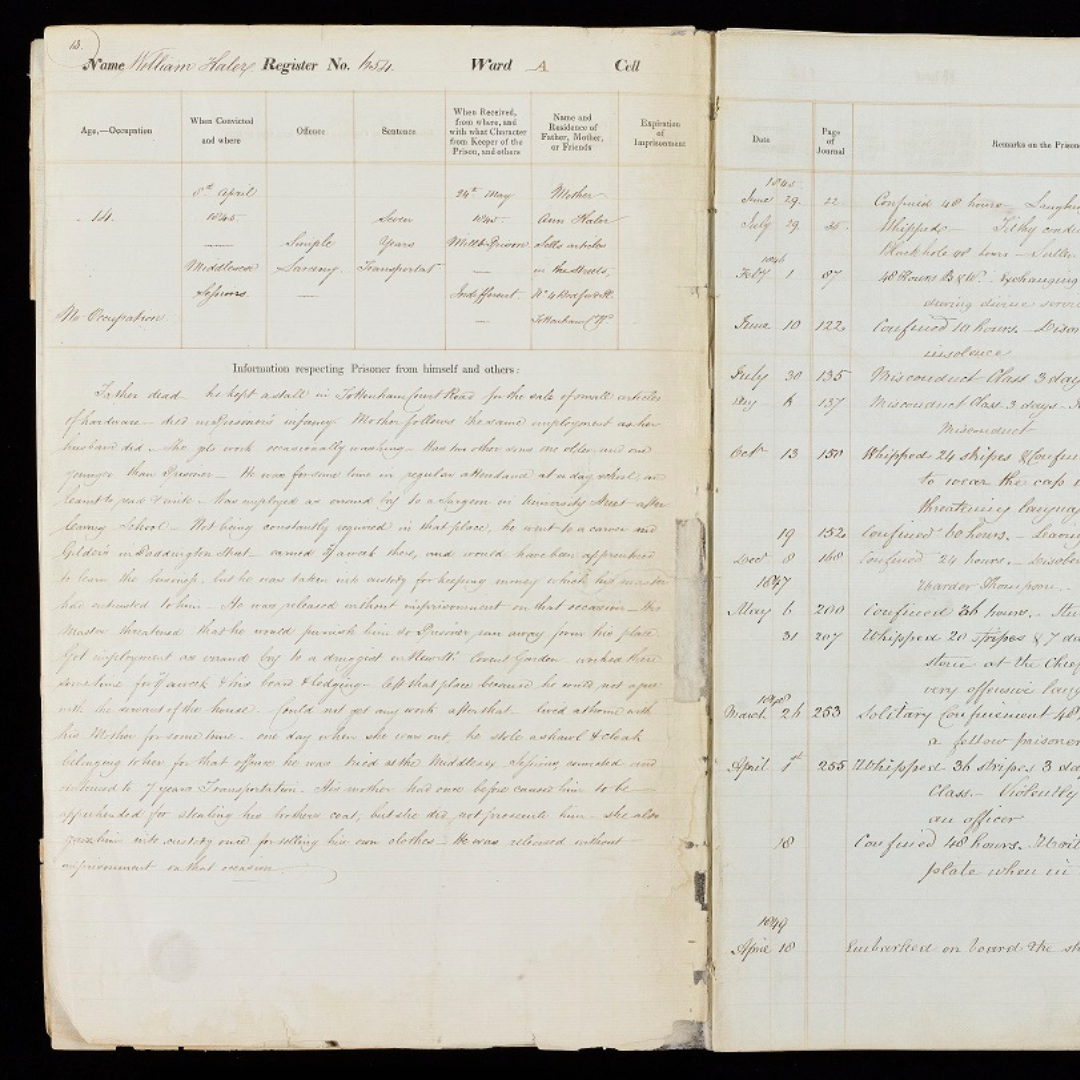 13.
Name William Haley Register No. 1254. Ward A Cell
Age,—Occupation
When Convicted
and where
Offence
Sentence
When Received,
from where, and
with what Character
from Keeper of the
Prison, and others
Name and
Residence of
Father, Mother,
or Friends
Expiration
of
Imprisonment
14.
No Occupation
8th April
1845
Middlesex
Sessions
Simple
Larceny.
Seven
Years
Transportat
24th May
1845
Millb Prison
Indifferent.
Mother
Ann Haley
Sells articles
in the streets,
No 4 Bedford St.
Tottenham Ct Rd.
Information respecting Prisoner from himself and others:
Father dead he kept a stall in Tottenham Court Road for the sale of small articles
of hardware – died in Prisoner's infancy. Mother follows the same employment as her
husband did – She gets work occasionally washing – Has two other sons one older and one
younger than Prisoner – He was for some time in regular attendance at a day school, and
learnt to read & write – Was employed as errand boy to a Surgeon in University Street after
leaving School – Not being constantly required in that place, he went to a carver and
Gilder's in Street – earned a week there, and would have been apprenticed
to learn the business, but he was taken into custody for keeping money which his master
had entrusted to him – He was released without imprisonment on that occasion – His
Master threatened that he would punish him so Prisoner ran away from his place
Got employment as errand boy to a druggist in New St. Covent Garden worked there
some time for a week & his board & lodging – left that place because he could not agree
with the servant of the house. Could not get any work after that – lived at home with
his Mother for some time – one day when she was out, he stole a shawl & cloak
belonging to her for that offence he was tried at the Middlesex Sessions, convicted and
sentenced to 7 years Transportation. His mother had once before caused him to be
apprehended for stealing his brothers coat, but she did not prosecute him – she also
gave him into custody once for selling his own clothes – He was released without
imprisonment on that occasion.
Date
Page
of
Journal
Remarks on the Prison
1845
June 29. 22 Confined 48 hours
July 29 Whipped – Filthy
Blackhole hours –
1846
Feby 1 87 48 Hours B & W. Exchanging
during divine servi
June 10 122 Confined 10 hours. –
insolence
July 30 135 Misconduct Class 3 day
Aug 137 Misconduct Class. 3 days –
Misconduct
Oct 13 150 Whipped 24 stripes & Confin
to wear the cap
threatening langua
19 152 Confined 60 hours. – Leavin
Decr 8 168 Confined 24 hours. – Disobe
Warder Thompson.
1847
May 6 200 Confined 36 hours. –
31 207 Whipped 20 stripes & 7 da
stone at the Chief
very offensive lang
1848
March 253 Solitary Confinement 48
a fellow prisoner
April 1st 255 Whipped 36 stripes 3 da
Class. – Violently
an officer
18 Confined 48 hours.
plate when in
1849
April 18 Embarked on board the